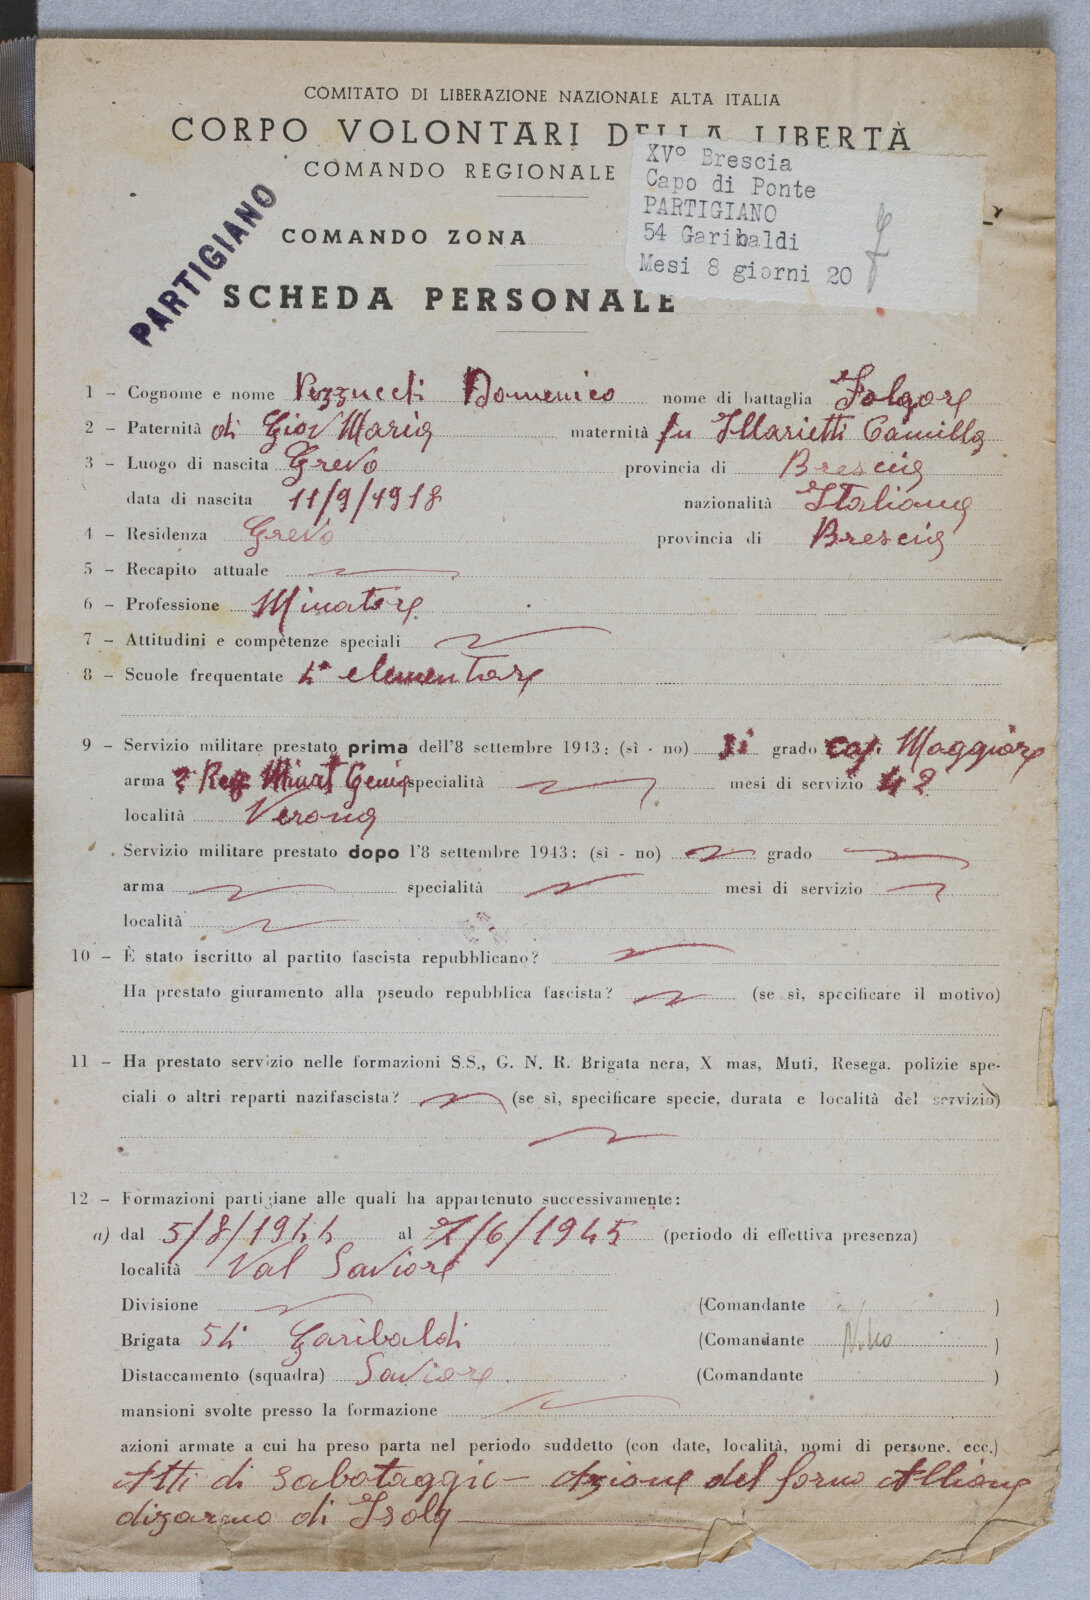 COMITATO DI LIBERAZIONE NAZIONALE ALTA ITALIA
CORPO VOLONTARI DELLA LIBERTÀ
COMANDO REGIONALE
XV° Brescia
Capo di Ponte
PARTIGIANO
54 Garibaldi
Mesi 8 giorni 20
PARTIGIANO
COMANDO ZONA
SCHEDA PERSONALE
1 - Cognome e nome Domenico nome di battaglia Folgore
2 - Paternità di Giov Maria maternità fu Marietti Camilla
3 - Luogo di nascita Grevo provincia di Brescia
data di nascita 11/9/1918 nazionalità Italiana
4 - Residenza Grevo provincia di Brescia
5 - Recapito attuale
6 - Professione Minatore
7 - Attitudini e compètenze speciali
8 - Scuole frequentate elementare
9 - Servizio militare prestato prima dell'8 settembre 1943: (sì - no) Si grado Cap. Maggiore
arma Reg Minat Genio specialità mesi di servizio 42
località Verona
Servizio militare prestato dopo l'8 settembre 1943: (sì - no) grado
arma specialità mesi di servizio
località
10 - È stato iscritto al partito fascista repubblicano?
Ha prestato giuramento alla pseudo repubblica fascista? (se sì, specificare il motivo)
11 - Ha prestato servizio nelle formazioni S.S., G. N. R. Brigata nera, X mas, Muti, Resega, polizie spe-
ciali o altri reparti nazifascista? (se sì, specificare specie, durata e località del servizio)
12 - Formazioni partigiane alle quali ha appartenuto successivamente:
a) dal 5/8/1944 al 7/6/1945 (periodo di effettiva presenza)
località Val Saviore
Divisione (Comandante )
Brigata 54 Garibaldi (Comandante Nino )
Distaccamento (squadra) Saviore (Comandante )
mansioni svolte presso la formazione
azioni armate a cui ha preso parta nel periodo suddetto (con date, località, nomi di persone, ecc.)
Atti di sabotaggio - Azione del forno Allione
dizarmo di Isola